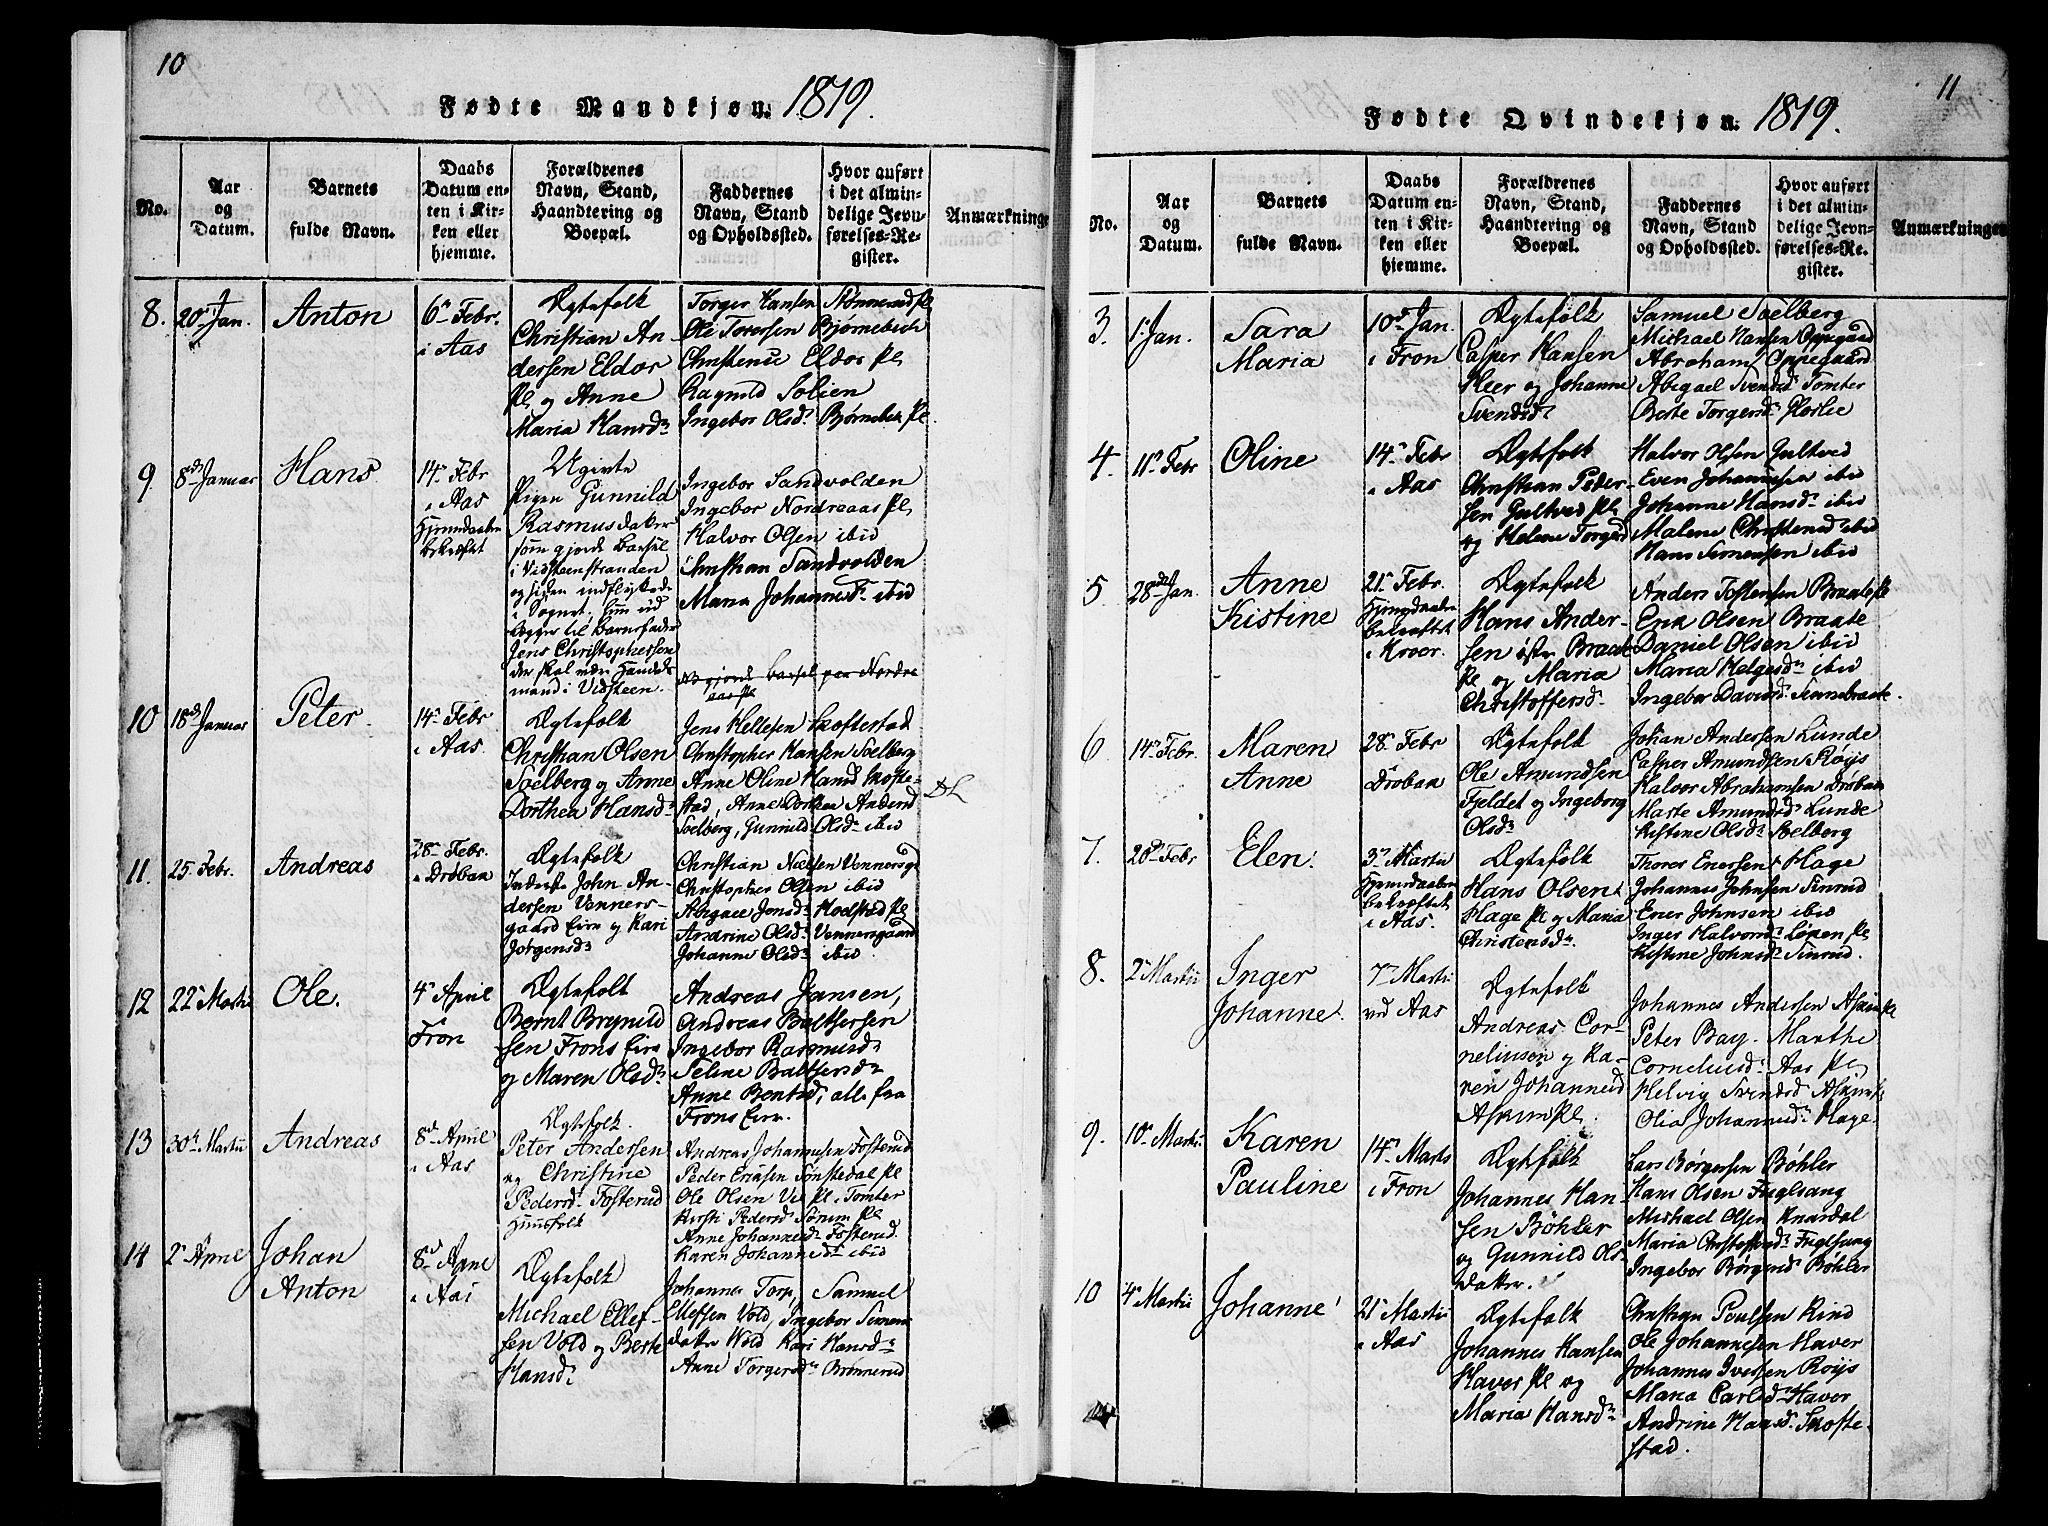 10
Fødte Mandkjøn. 1819.
No.
Aar
og
Datum.
Barnets
fulde Navn.
Daabs
Datum en-
ten i Kir-
ken eller
hjemme.
Forældrenes
Navn, Stand,
Haandtering og
Boepæl.
Faddernes
Navn, Stand
og Opholdssted.
Hvor anført
i det almin-
delige Jevn-
førelses-Re-
gister.
Anmærkninge
8.
20de Jan.
Anton
6te Febr.
i Aas
Ægtefolk
Christian An-
dersen Eldor
Pl. og Anne
Maria Hansdr
Torger Hansen Rønnerud Pl.
Ole Torersen Bjørnebek
Christense Eldor Pl.
Ragnild Solien
Ingebor Olsdr Bjørnebek Pl.
9
8de Januar
Hans
14de Febr
i Aas
Hjemdaaben
bekræftet
Ugivte
Pigen Gunnild
Rasmusdatter
som gjorde Barsel
i Vidsteenstranden
og siden indflyttede
i Sognet, hun ud
lægger til Barnefader
Jens Christophersen
der skal være Handels
mand i Vidsteen.
Ingebor Sandvolden
Ingebor Nordreaas Pl.
Halvor Olsen ibid
Christian Sandvolden
Maria Johannesdr ibid
NB gjorde barsel paa Nordre
aas Pl
10
18de Januar
Peter
14de Febr
i Aas
Ægtefolk
Christian Olsen
Solberg og Anne
Dorthea Hansdr
Jens Hellesen Skoftestad
Christopher Hansen Solberg
Anne Oline Hansd Skofte-
stad, Anne Dorthea Andersd
Solberg, Gunnild Olsdr ibid
11.
25 Febr.
Andreas
28de Febr.
i Drøbak
Ægtefolk
Inderste John An-
dersen Venners-
gaard Eire og Kari
Jørgensdr
Christian Nielsen Vennersgd
Christopher Olsen ibid
Abigael Jonsdr Hodsted Pl.
Andrine Olsdr Vennersgaard
Johanne Olsdr ibid
12
22de Martii
Ole.
4de April
Fron
Ægtefolk
Bernt Brynild
sen Frons Eire
og Maren Olsdr
Andreas Jansen,
Andreas Baltsersen
Ingebor Rasmusdr
Seline Baltsersdr
Anne Bentsd, alle fra
Frons Eire.
13
30te Martii
Andreas
8de April
i Aas
Ægtefolk.
Peter Andersen
og Christine
Pedersdr Fosterud
Huusfolk
Andreas Johannesen Fosterud
Peder Eriksen Sønstedal Pl
Ole Olsen Vis Pl. Tomter
Kirsti Pedersd Sørum Pl
Anne Johannesdr Fosterud.
Karen Johannesdr ibid
14
2de Aprie
Johan
Anton
8de Aprie
i Aas
Ægtefolk
Michael Ellef-
sen Vold og Berte
Hansdr
Johannes Torp, Samuel
Ellefsen Vold, Ingebor Simens
datter Vold Kari Hansdr
Anne Torgersdr Brønnerud
11
Fødte Qvindekjøn. 1819.
No.
Aar
og
Datum.
Barnets
fulde Navn.
Daabs
Datum en-
ten i Kir-
ken eller
hjemme.
Forældrenes
Navn, Stand,
Haandtering og
Boepæl.
Faddernes
Navn, Stand
og Opholdssted.
Hvor anført
i det almin-
delige Jevn-
førelses-Re-
gister.
Anmærkninger
3.
1 Jan.
Sara
Maria
10de Jan.
i Fron
Ægtefolk
Casper Hansen
Heer og Johanne
Svendsdr
Samuel Solberg
Michael Hansen Oppegaard
Abraham Oppegaard
Abigael Svendsdr Tomter
Berte Torgersdr Horlie
4.
11te Febr
Oline
14de Febr
i Aas
Ægtefolk
Christian Peder-
sen Gultved Pl.
og Helene Torgersd
Halvor Olsen Gultved
Even Johannesen ibid
Johanne Hansdr ibid
Malene Christensd ibid
Hans Simensen ibid
5
28de Jan.
Anne
Kistine
21de Febr.
Hjemdaaben
bekræftet
i Kroer.
Ægtefolk
Hans Ander-
sen øster Braate
Pl. og Maria
Christoffersdr
Anders Tostensen Braate Pl
Erik Olsen Braate
Daniel Olsen ibid
Maria Helgesdr ibid
Ingebor Davidsdr Sennebraate.
6
14de Febr.
Maren
Anne
28de Febr
Drøbak
Ægtefolk
Ole Amundsen
Fjeldet og Ingeborg
Olsdr
Johan Andersen Lunde
Casper Amundsen Røys
Halvor Abrahamsen Drøbak
Marte Amundsdr Lunde
Kistine Olsdr Solberg
7.
20de Febr
Elen.
3de Martii
Hjemdaaben
bekræftet
i Aas.
Ægtefolk
Hans Olsen
Hage Pl. og Maria
Christensdr
Thorer Enersen Hage
Johannes Johnsen Sinrud
Ener Johnsen ibid
Inger Halvorsdr Løken Pl
Kistine Johnsdr Sinrud.
8.
2de Martii
Inger
Johanne.
7de Marti
ved Aas
Ægtefolk
Andreas Cor-
neliusen og Ka-
ren Johannesd
Askim Pl.
Johannes Andersen Askim Pl
Peter Bay. Marthe
Corneliusdr Aas Pl.
Helvig Svendsd Askim
Olia Johannesdr Hage.
9.
10de Martii
Karen
Pauline
14de Martii
i Fron
Ægtefolk
Johannes Han
sen Bøhler
og Gunnild Ols
datter.
Lars Børgersen Bøhler
Hans Olsen Fuglsang
Michael Olsen Knardal
Maria Christoffersdr Fuglsang
Ingebor Børgersd Bøhler
10
4de Martii
Johanne
21de Martii
i Aas
Ægtefolk
Johannes Hansen
Haver Pl. og
Maria Hansdr
Christian Poulsen Rind
Ole Johannesen Haver
Johannes Ivelsen Røys
Maria Carlsdr Haver
Andrine Hansdr Skofte-
stad.